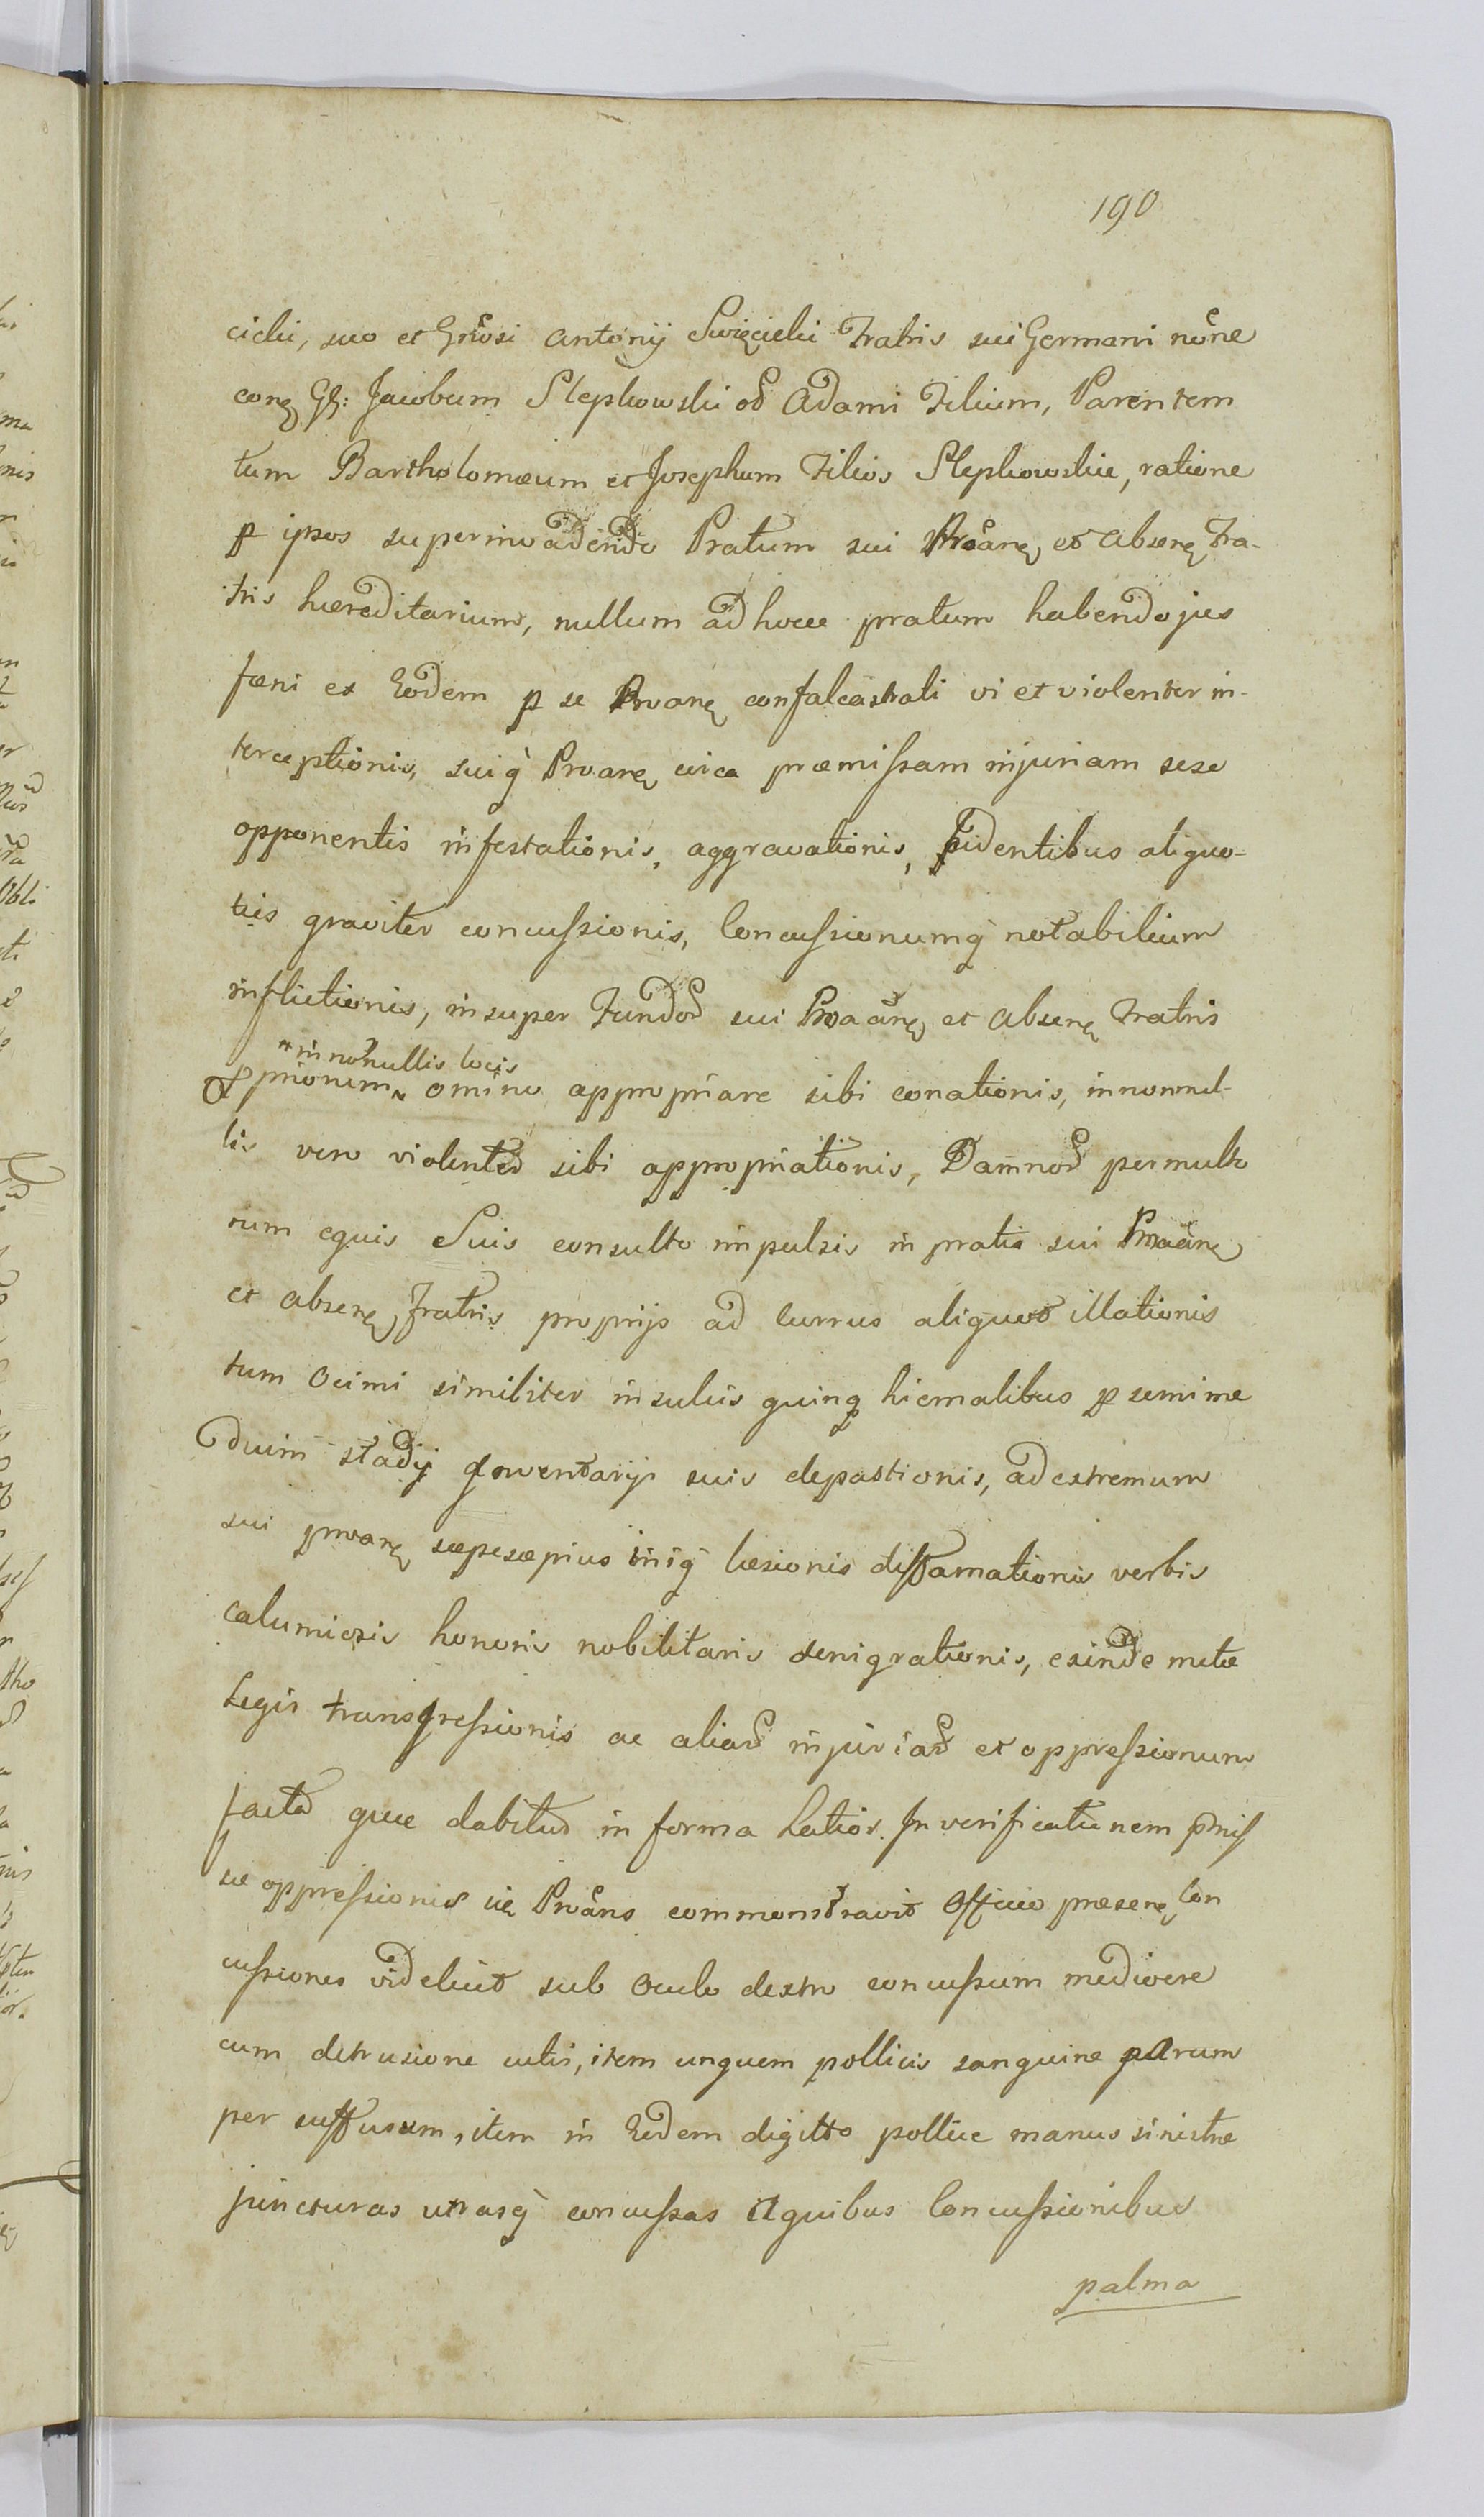 190
cicki, suo et Gnrosi Antonij Swięcicki Fratris sui Germani nõne
conę Gs: Jacobum Slepkowski od Adami Filium, Parentem
tum Bartholomæum et Josephum Filios Slepkowskie, ratione
p ipsos superinvadendo Pratum sui Proanę et absenę Fra-
tris hæreditarium, nullum ad hocce pratum habendo jus
fæni ex Eodem p se Proanę confalcastrati vi et violenter in-
terceptionis, suiq Proanę circa præmissam injuriam sese
opponentis infestationis, aggravationis, fidentibus aliquo-
ties graviter concussionis, Concussionumq notabilium
inflictionis, insuper Fundor sui Proaanę et absenę Fratris
*in nonullis locis
priorum omino appropriare sibi conationis, in nonnul-
lis vero violenter sibi appropriationis, Damnor permulto
rum equis Suis consulto impulsis in prata sui Proaanę
et absenę Fratris proprijs ad currus aliquot illationis
tum Ocimi similiter in sulcis quinq hiemalibus p semime
dium stadij suis depastionis, ad extremum
sui proanę sæpesæpius iniq læsionis diffamationis verbis
calumiosis honoris nobilitaris denigrationis, exinde metæ
Legis transgressionis ac aliar injuriar et oppressionum
facta quæ dabitur in forma Latior. In verificationem pmis
sæ oppressionis ię Proans commonstravit Officio præsenę Con
cussiones videlicet sub Oculo dextro concussum mediocre
cum detrusione cutis, item unguem pollicis sanguine parum
per suffusum, item in Eodem digitto pollice manus sinistræ
juncturas utrasq concussas A quibus Concussionibus
palma